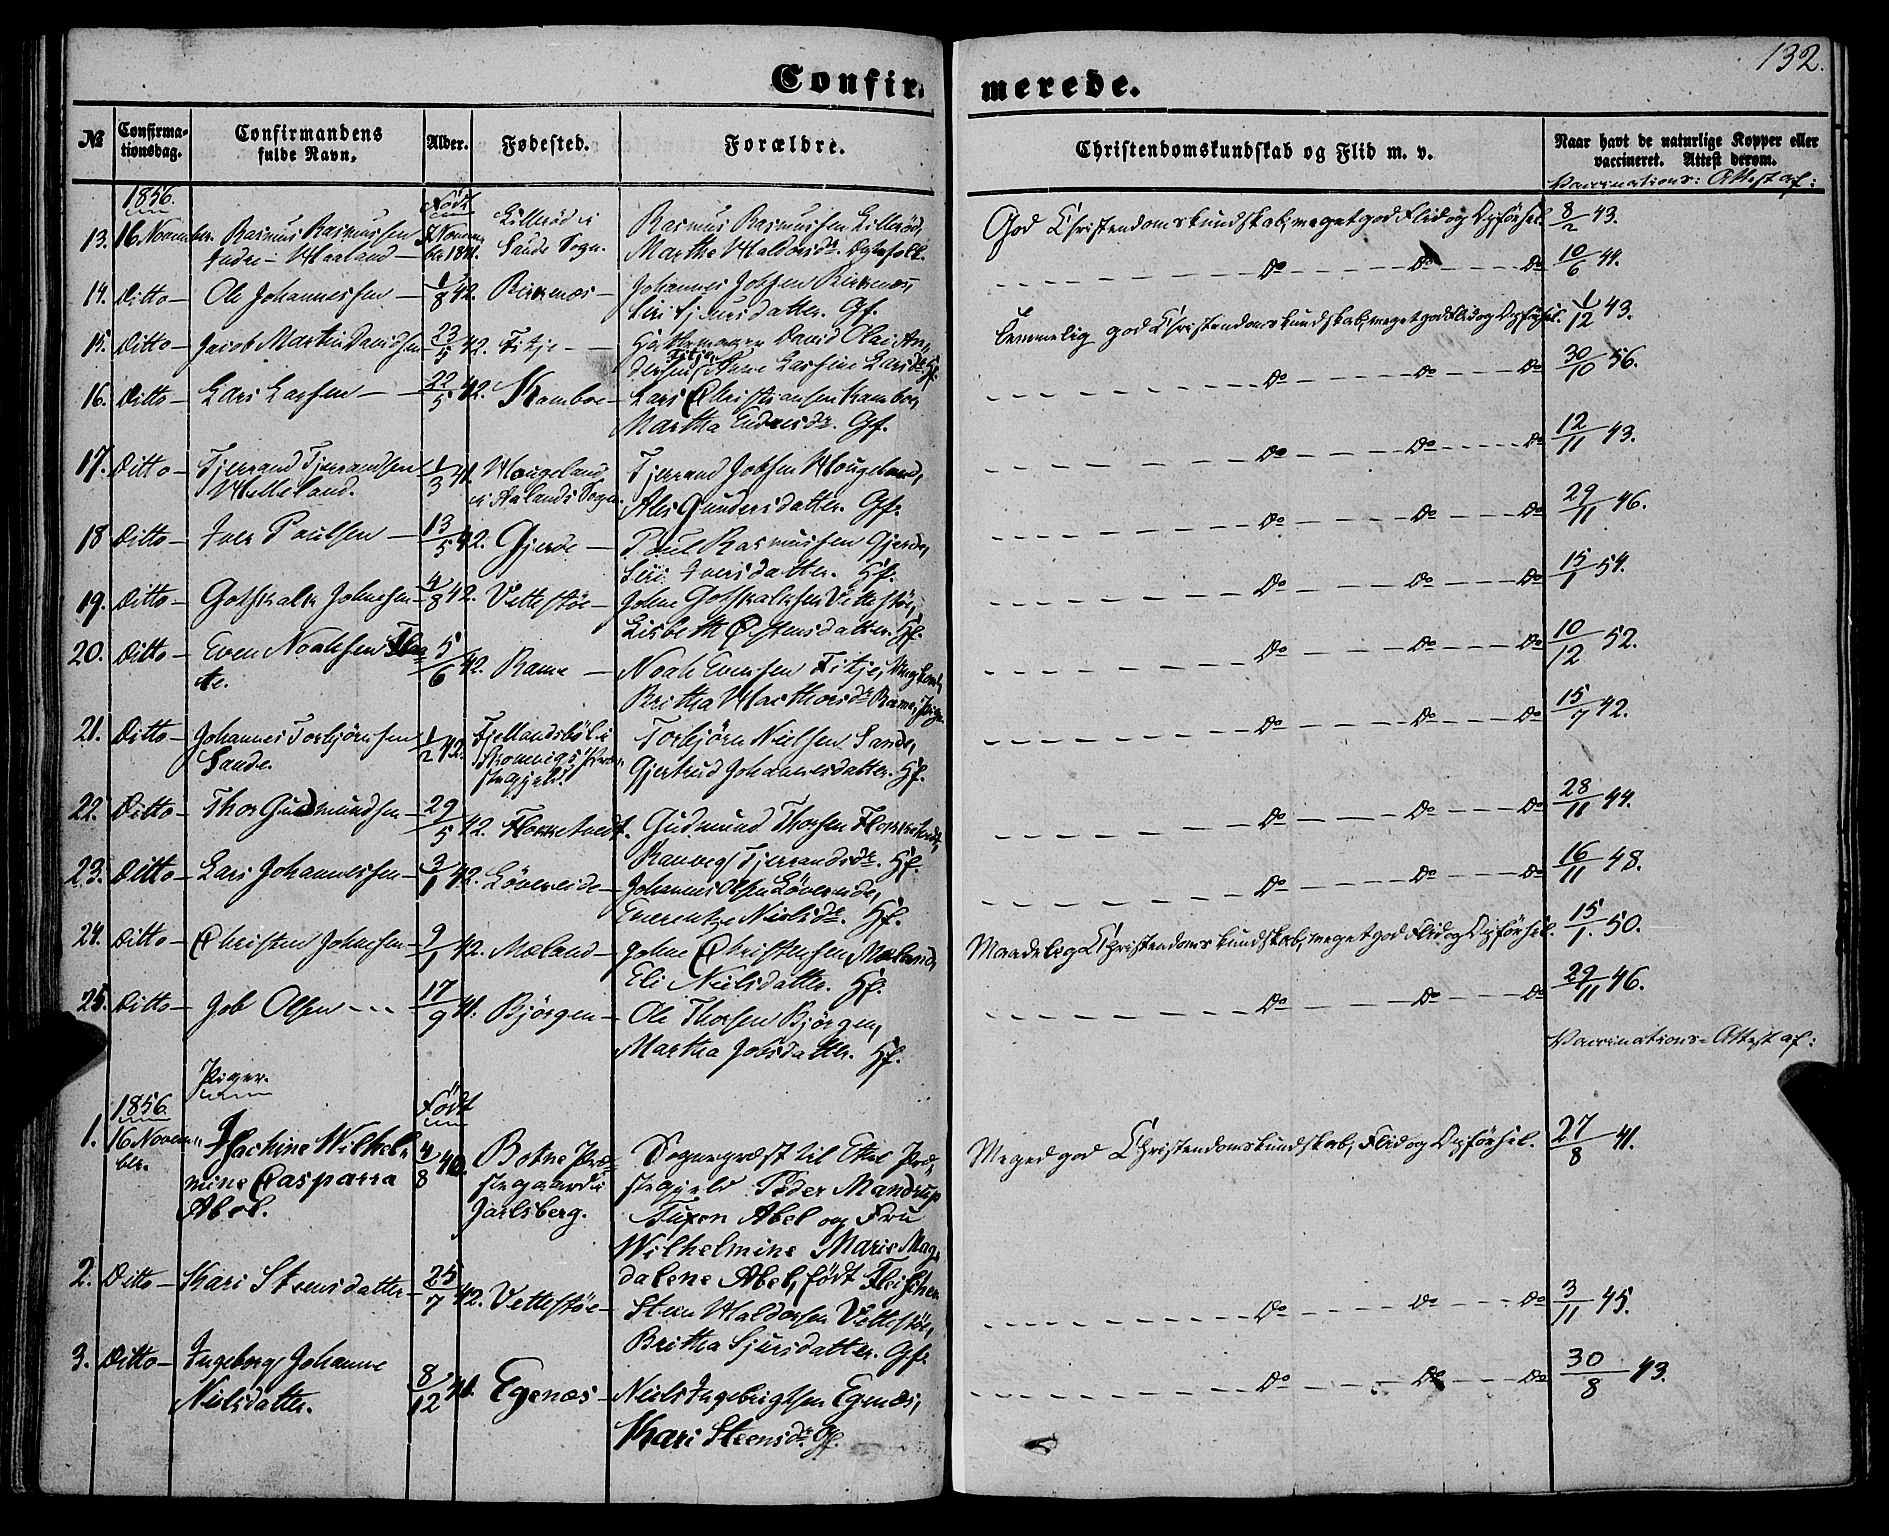 132.
Confirmerede.
№ Confirmationsdag. Confirmandens fulde Navn. Alder. Fødested. Forældre. Christendomskundskab og Flid m. v. Naar havt de naturlige Kopper eller vaccineret. Attest derom.
Vaccinations-Attest af:
1856. Født
13. 16. November Rasmus Rasmussen
Indre-Haaland Novem
ber 1841. Lilleröd i
Sands Sogn. Rasmus Rasmussen Lilleröd,
Martha Haldorsdr. Egtefolk. God Christendomskundskab, meget god Flid og Opførsel. 8/2 43.
14. Ditto Ole Johannessen 1/8 42. Birkenæs Johannes Jobsen Birkenæs,
Siri Sjursdatter. Gf. Do Do Do 10/6 44.
15. Ditto Jacob Martin Davidsen 23/5 42. Fitje David Olai An-
dersen Fitje, Anne Larsine Larsdr. Hf. Temmelig god Christendomskundskab, meget god Flid og Opførsel. 1/12 43.
16. Ditto Lars Larsen 22/5 42. Kamboe Lars Christiansen Kamboe,
Martha Endresdr. Gf. Do Do Do 30/10 56.
17. Ditto Tjerrand Tjerrandsen
Helleland. 1/3 41. Hougeland
i Aalands Sogn. Tjerrand Jobsen Hougeland,
Ales Gundersdatter. Gf. Do Do Do 12/11 43.
18 Ditto Iver Paulsen 13/5 42. Gjerde Paul Rasmussen Gjerde,
Siri Iversdatter. Hf. Do Do Do 29/11 46.
19. Ditto Gotskalk Johnesen 4/8 42. Vettestöe Johne Gotskalksen Vettestöe,
Lisbeth Østensdatter. Hf. Do Do Do 15/1 54.
20. Ditto Even Noahsen
5/6 42. Rame Noah Evensen Fitje, Ungkarl,
Britha Hactorsdr. Rame, Pige. Do Do Do 10/12 52.
21. Ditto Johannes Torbjörnsen
Sande. 1/2 42. Fjellandsböl i
Præ-
stegjeld. Torbjörn Nielsen Sande,
Gjertrud Johannesdatter. Hf. Do Do Do 15/7 42.
22. Ditto Thor Gudmundsen 29/5 42. Flokketvedt. Gudmund Thorsen Flokketvedt,
Ranveg Tjerrandsdr. Hf. Do Do Do 28/11 44.
23. Ditto Lars Johannessen 3/1 42. Lövereide Johannes Olsen Lövereide,
Nielsdr. Hf. Do Do Do 16/11 48.
24. Ditto Christen Johnesen 9/1 42. Mæland Johne Christensen Mæland,
Eli Nielsdatter. Hf. Maadelig Christendomskundskab, meget god Flid og Opførsel. 15/1. 50.
25. Ditto Job Olsen 17/9 41. Björgen Ole Thorsen Björgen,
Martha Jobsdatter. Hf. Do Do Do 29/11 46.
Vaccinations-Attest af:
Piger.
1856. Født
1. 16 Novem-
ber. Hackine Wilhel-
mine Casparra
Abel. 4/8 40. Botne Præ-
stegaard i
Jarlsberg. Sognepræst til Ethne Præ-
stegjeld Peder Mandrup
Tuxen Abel og Fru
Wilhelmine Marie Mag-
dalene Abel, født Fleischer. Meged god Christendomskundskab, Flid og Opførsel. 27/8 41.
2. Ditto Kari Steensdatter 25/7 42. Vettestöe Steen Haldorsen Vettestöe,
Britha Sjursdatter. Gf. Do Do Do 3/11 45.
3. Ditto Ingeborg Johanne
Nielsdatter. 8/12 41. Egenæs Niels Ingebrigtsen Egenæs,
Kari Steensdr. Gf. Do Do Do 30/8 43.